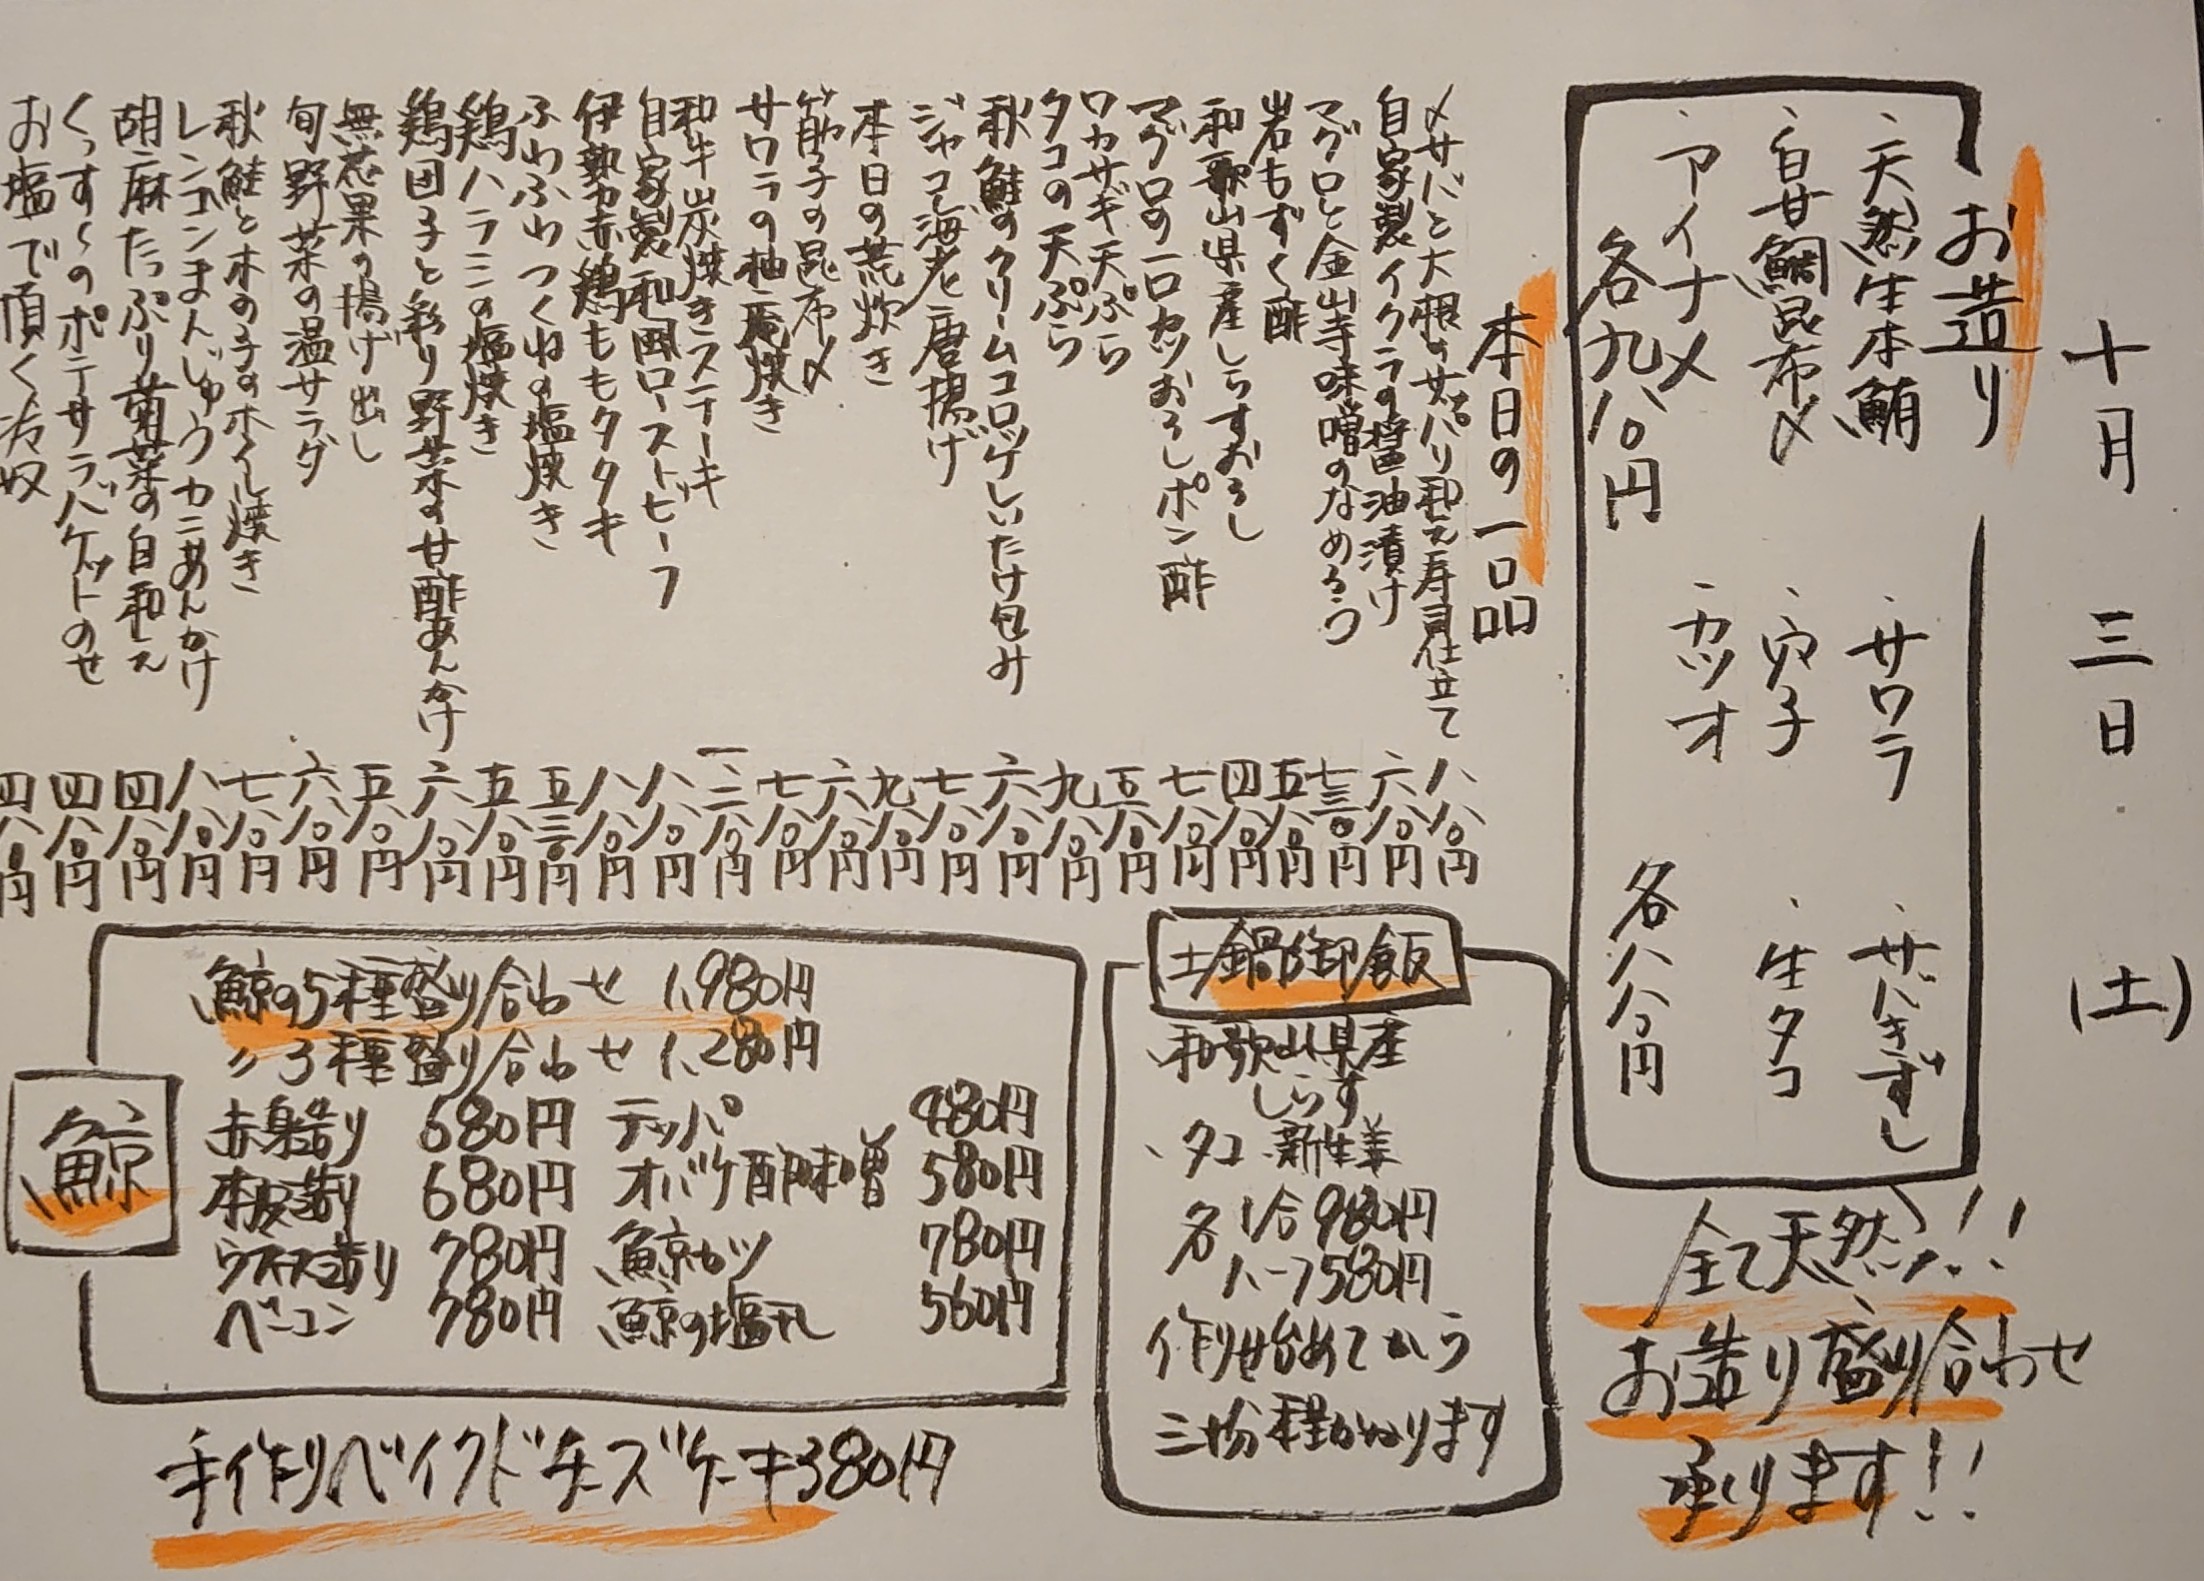 十月三日(土)
お造り
・天然生本鮪
・サワラ
・サバきずし
・白甘鯛昆布〆
・穴子
・生タコ
・アイナメ
・カツオ
各九八〇円
各八八〇円
全て天然!!
お造り盛り合わせ
承ります!!
本日の一品
〆サバと大根のサッパリ和え寿司仕立て 八八〇円
自家製イクラの醤油漬け 六八〇円
マグロと金山寺味噌のなめろう 七三〇円
岩もずく酢 五八〇円
和歌山県産しらすおろし 四八〇円
マグロの一口カツおろしポン酢 七八〇円
ワカサギ天ぷら 五八〇円
タコの天ぷら 九八〇円
秋鮭のクリームコロッケしいたけ包み 六八〇円
ジャコ海老唐揚げ 七八〇円
本日の荒炊き 九八〇円
筋子の昆布〆 六八〇円
サワラの柚庵焼き 七八〇円
和牛炭焼きステーキ 一二八〇円
自家製和風ローストビーフ 八八〇円
伊勢赤鶏ももタタキ 八八〇円
ふわふわつくねの塩焼き 五三〇円
鶏ハラミの塩焼き 五八〇円
鶏団子と彩り野菜の甘酢あんかけ 六八〇円
無花果の揚げ出し 五八〇円
旬野菜の温サラダ 六八〇円
秋鮭と木の子のホイル焼き 七八〇円
レンコンまんじゅうカニあんかけ 八八〇円
胡麻たっぷり菊菜の白和え 四八〇円
くっすんのポテサラバケットのせ 四八〇円
お塩で頂く冷奴 四八〇円
土鍋御飯
・和歌山県産
しらす
・タコ 新生姜
各1合980円
ハーフ580円
作り始めてから
三十分程かかります
鯨
鯨の5種盛り合わせ 1,980円
〃3種盛り合わせ 1,280円
赤身造り 680円 テッパ 480円
本皮造り 680円 オバケ酢味噌 580円
ウネス造り 780円 鯨カツ 780円
ベーコン 780円 鯨の塩コロ 560円
手作りベイクドチーズケーキ380円